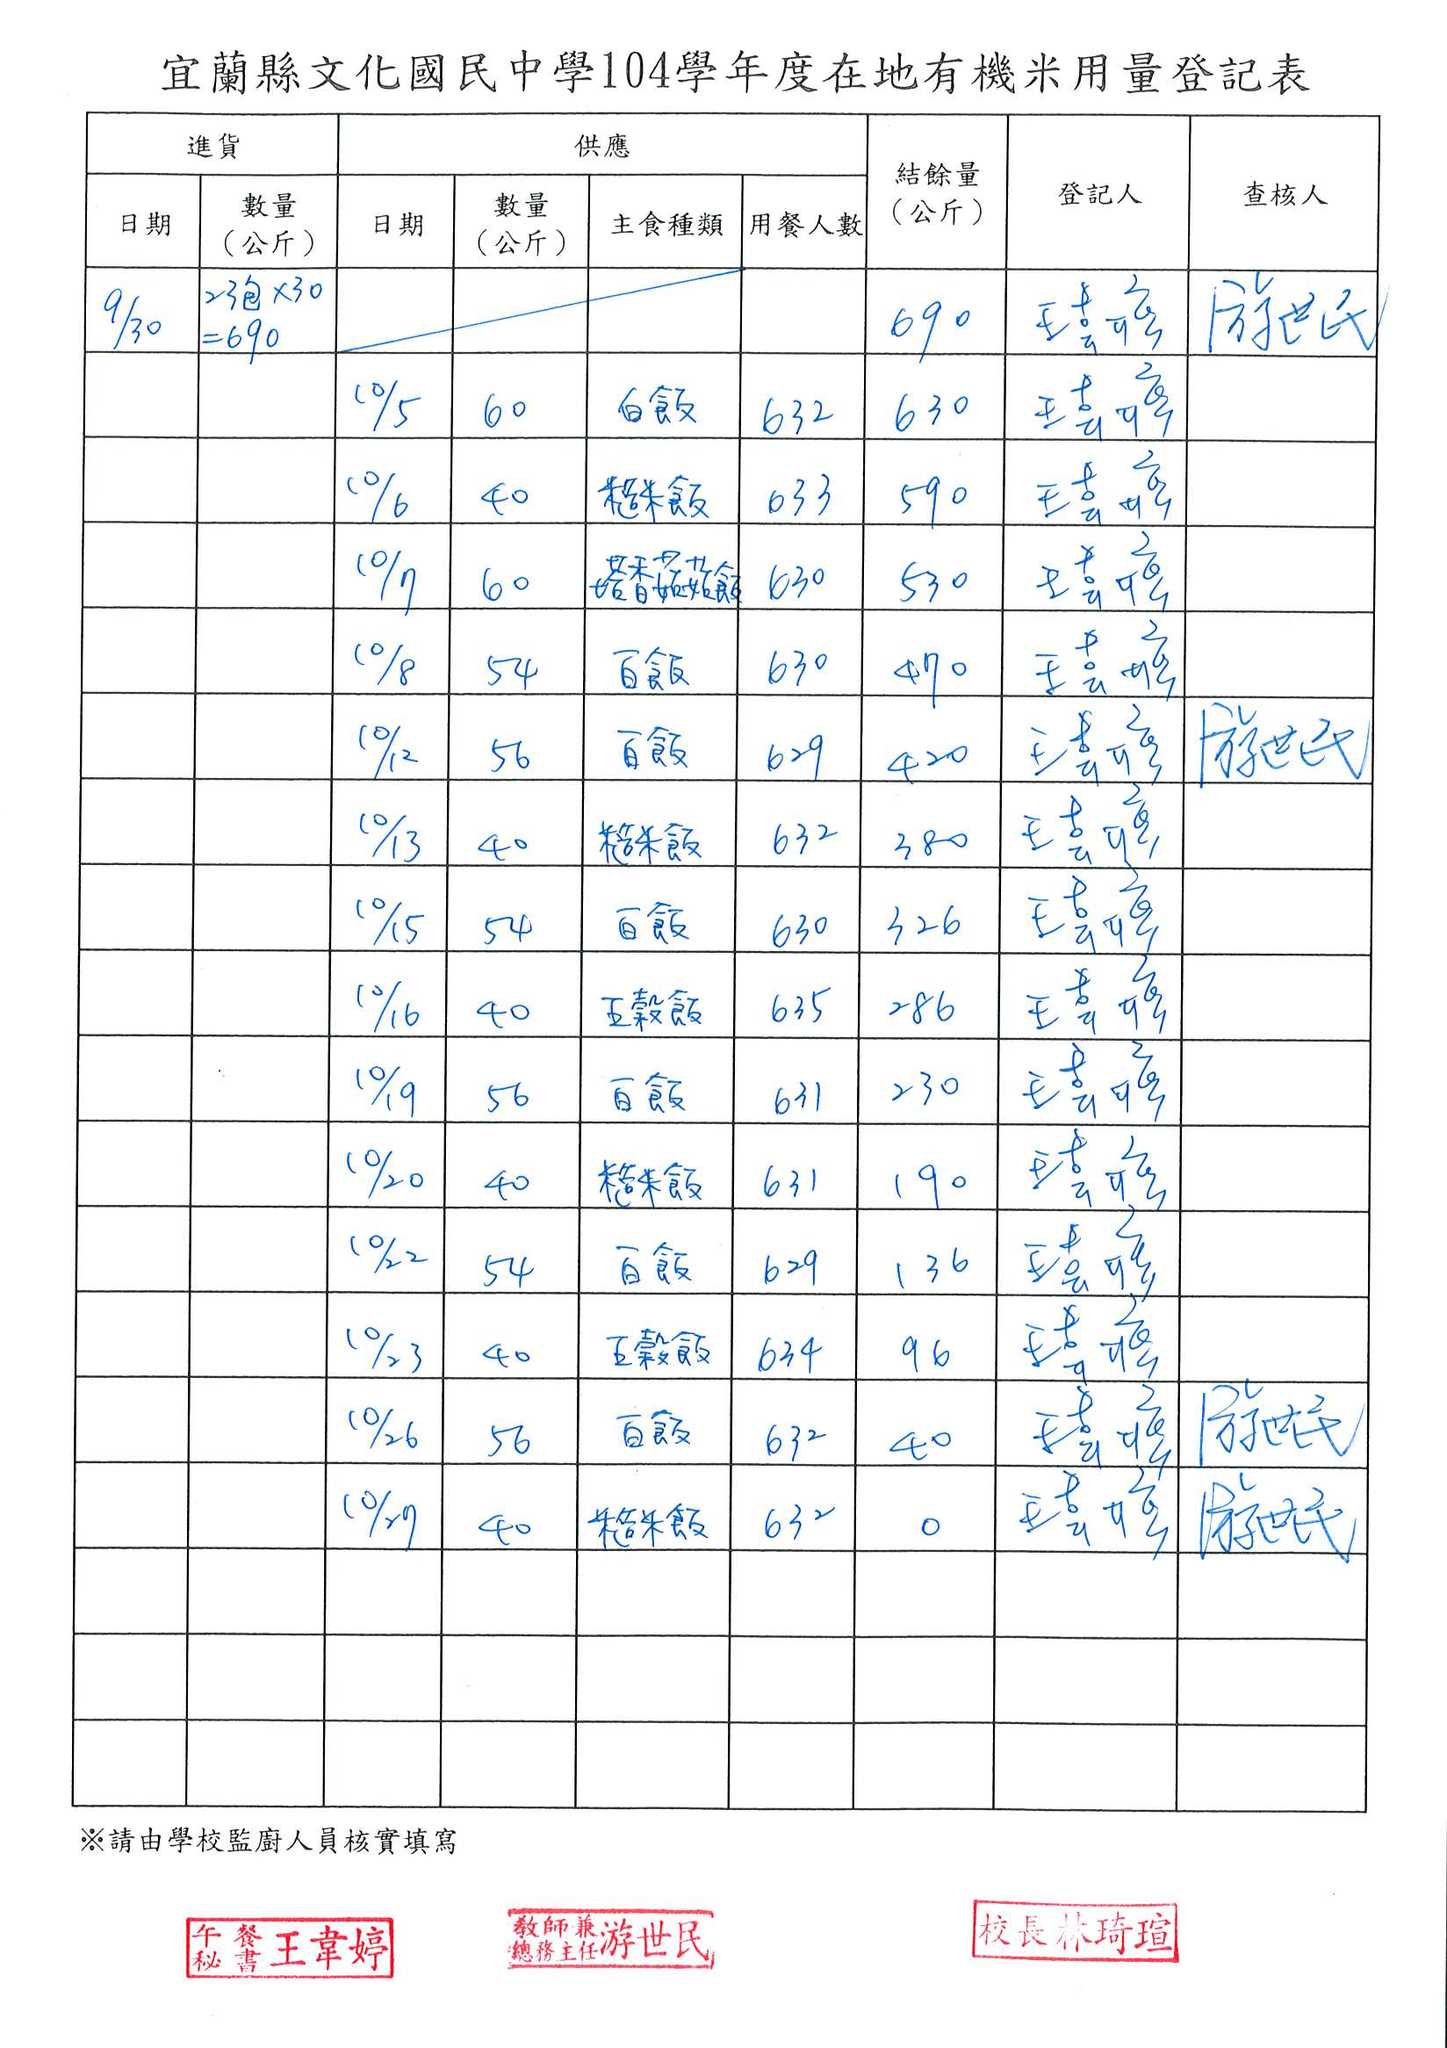 宜蘭縣文化國民中學104學年度在地有機米用量登記表
進貨 供應 結餘量（公斤） 登記人 查核人
日期 數量（公斤） 日期 數量（公斤） 主食種類 用餐人數
9/30 23包×30=690 690 王韋婷 游世民
10/5 60 白飯 632 630 王韋婷
10/6 40 糙米飯 633 590 王韋婷
10/7 60 香菇飯 630 530 王韋婷
10/8 54 白飯 630 470 王韋婷
10/12 56 白飯 629 420 王韋婷 游世民
10/13 40 糙米飯 632 380 王韋婷
10/15 54 白飯 630 326 王韋婷
10/16 40 五穀飯 635 286 王韋婷
10/19 56 白飯 631 230 王韋婷
10/20 40 糙米飯 631 190 王韋婷
10/22 54 白飯 629 136 王韋婷
10/23 40 五穀飯 634 96 王韋婷
10/26 56 白飯 632 40 王韋婷 游世民
10/27 40 糙米飯 632 0 王韋婷 游世民
※請由學校監廚人員核實填寫
午餐秘書 王韋婷 教師兼總務主任 游世民 校長 林琦瑄